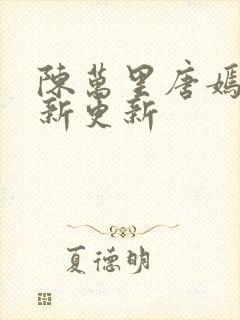 陳萬里唐嫣
新更新
夏德明